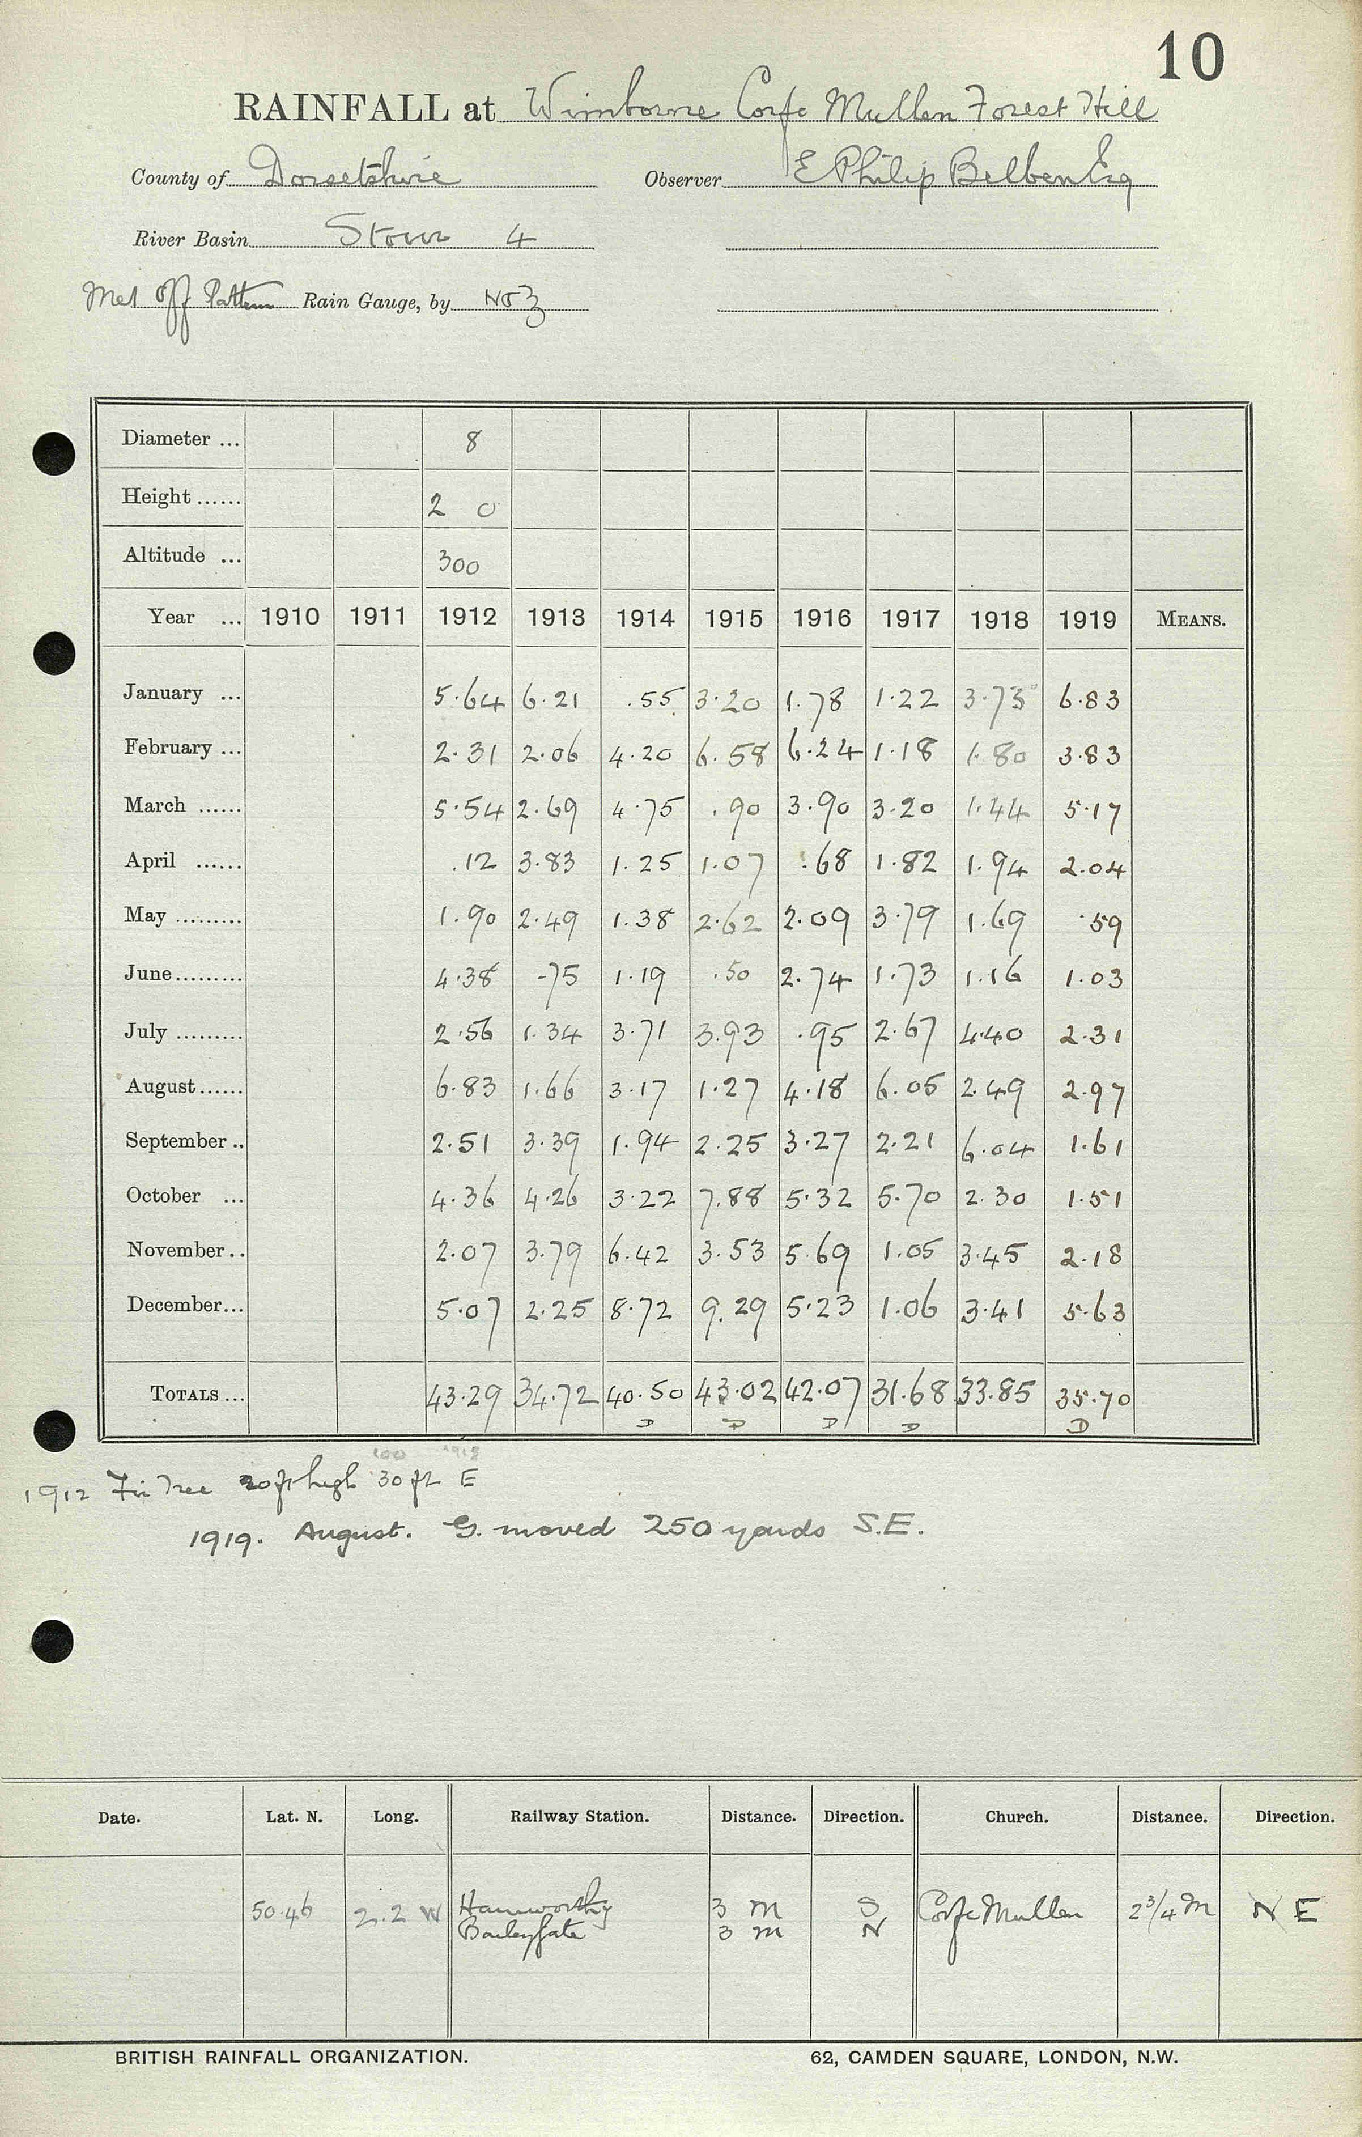 10
RAINFALL at Wimborne Corfe Mullen Forest Hill
County of Dorsetshire Observer E Philip Belben Esq
River Basin Stour 4
Met Off Pattern Rain Gauge, by No 3
Diameter ... 8
Height ...... 2 0
Altitude ... 300
Year ... 1910 1911 1912 1913 1914 1915 1916 1917 1918 1919 MEANS.
January ... 5.64 6.21 .55 3.20 1.78 1.22 3.73 6.83
February ... 2.31 2.06 4.20 6.58 6.24 1.18 1.80 3.83
March ...... 5.54 2.69 4.75 .90 3.90 3.20 1.44 5.17
April ...... .12 3.83 1.25 1.07 .68 1.82 1.94 2.04
May ......... 1.90 2.49 1.38 2.62 2.09 3.79 1.69 .59
June......... 4.38 .75 1.19 .50 2.74 1.73 1.16 1.03
July ......... 2.56 1.34 3.71 3.93 .95 2.67 4.40 2.31
August...... 6.83 1.66 3.17 1.27 4.18 6.05 2.49 2.97
September .. 2.51 3.39 1.94 2.25 3.27 2.21 6.04 1.61
October ... 4.36 4.26 3.22 7.88 5.32 5.70 2.30 1.51
November .. 2.07 3.79 6.42 3.53 5.69 1.05 3.45 2.18
December... 5.07 2.25 8.72 9.29 5.23 1.06 3.41 5.63
TOTALS ... 43.29 34.72 40.50 43.02 42.07 31.68 33.85 35.70
D D D D D
1912 Fir Tree 20 ft high 30 ft E
1919. August. G. moved 250 yards S.E.
Date. Lat. N. Long. Railway Station. Distance. Direction. Church. Distance. Direction.
50.46 2.2 W Hamworthy 3 m S Corfe Mullen 2 3/4 M N E
Baileygate 3 m N
BRITISH RAINFALL ORGANIZATION. 62, CAMDEN SQUARE, LONDON, N.W.